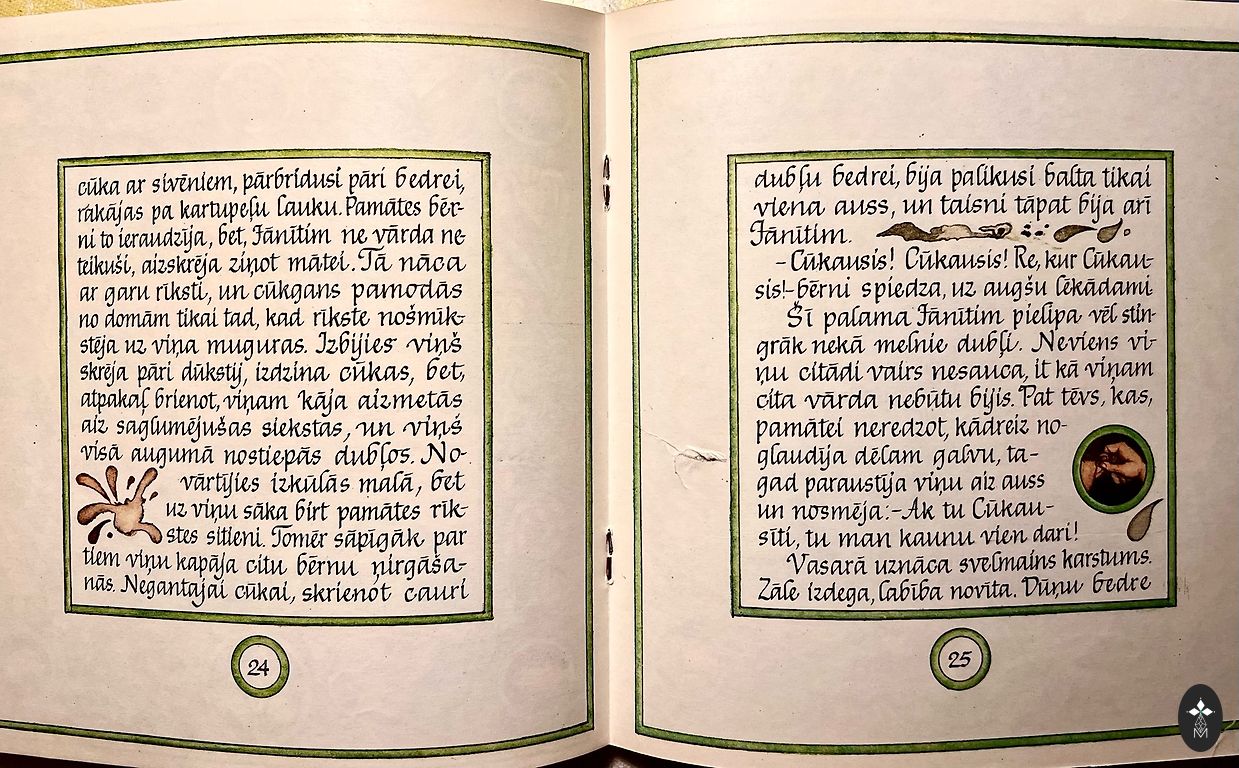 cūka ar sivēniem, pārbridusi pāri bedrei,
rakājas pa kartupeļu lauku. Pamātes bēr-
ni to ieraudzīja, bet, Jānītim ne vārda ne
teikuši, aizskrēja ziņot mātei. Tā nāca
ar garu rīksti, un cūkgans pamodās
no domām tikai tad, kad rīkste nošmīk-
stēja uz viņa muguras. Izbijies viņš
skrēja pāri dūkstij, izdzina cūkas, bet,
atpakaļ brienot, viņam kāja aizmetās
aiz saglumējušas siekstas, un viņš
visā augumā nostiepās dubļos. No-
vārtījies izkūlās malā, bet
uz viņu sāka birt pamātes rīk-
stes sitieni. Tomēr sāpīgāk par
tiem viņu kapāja citu bērnu ņirgāša-
nās. Negantajai cūkai, skrienot cauri
24
dubļu bedrei, bija palikusi balta tikai
viena auss, un taisni tāpat bija arī
Jānītim.
- Cūkausis! Cūkausis! Re, kur Cūkau-
sis!- bērni spiedza, uz augšu lēkādami
Šī palama Jānītim pielipa vēl stin-
grāk nekā melnie dubļi. Neviens vi-
ņu citādi vairs nesauca, it kā viņam
cita vārda nebūtu bijis. Pat tēvs, kas,
pamātei neredzot, kādreiz no-
glaudīja dēlam galvu, ta-
gad paraustīja viņu aiz auss
un nosmēja:- Ak tu Cūkau-
sīti, tu man kaunu vien dari!
Vasarā uznāca svelmains karstums.
Zāle izdega, labība novīta. Dūņu bedre
25
M